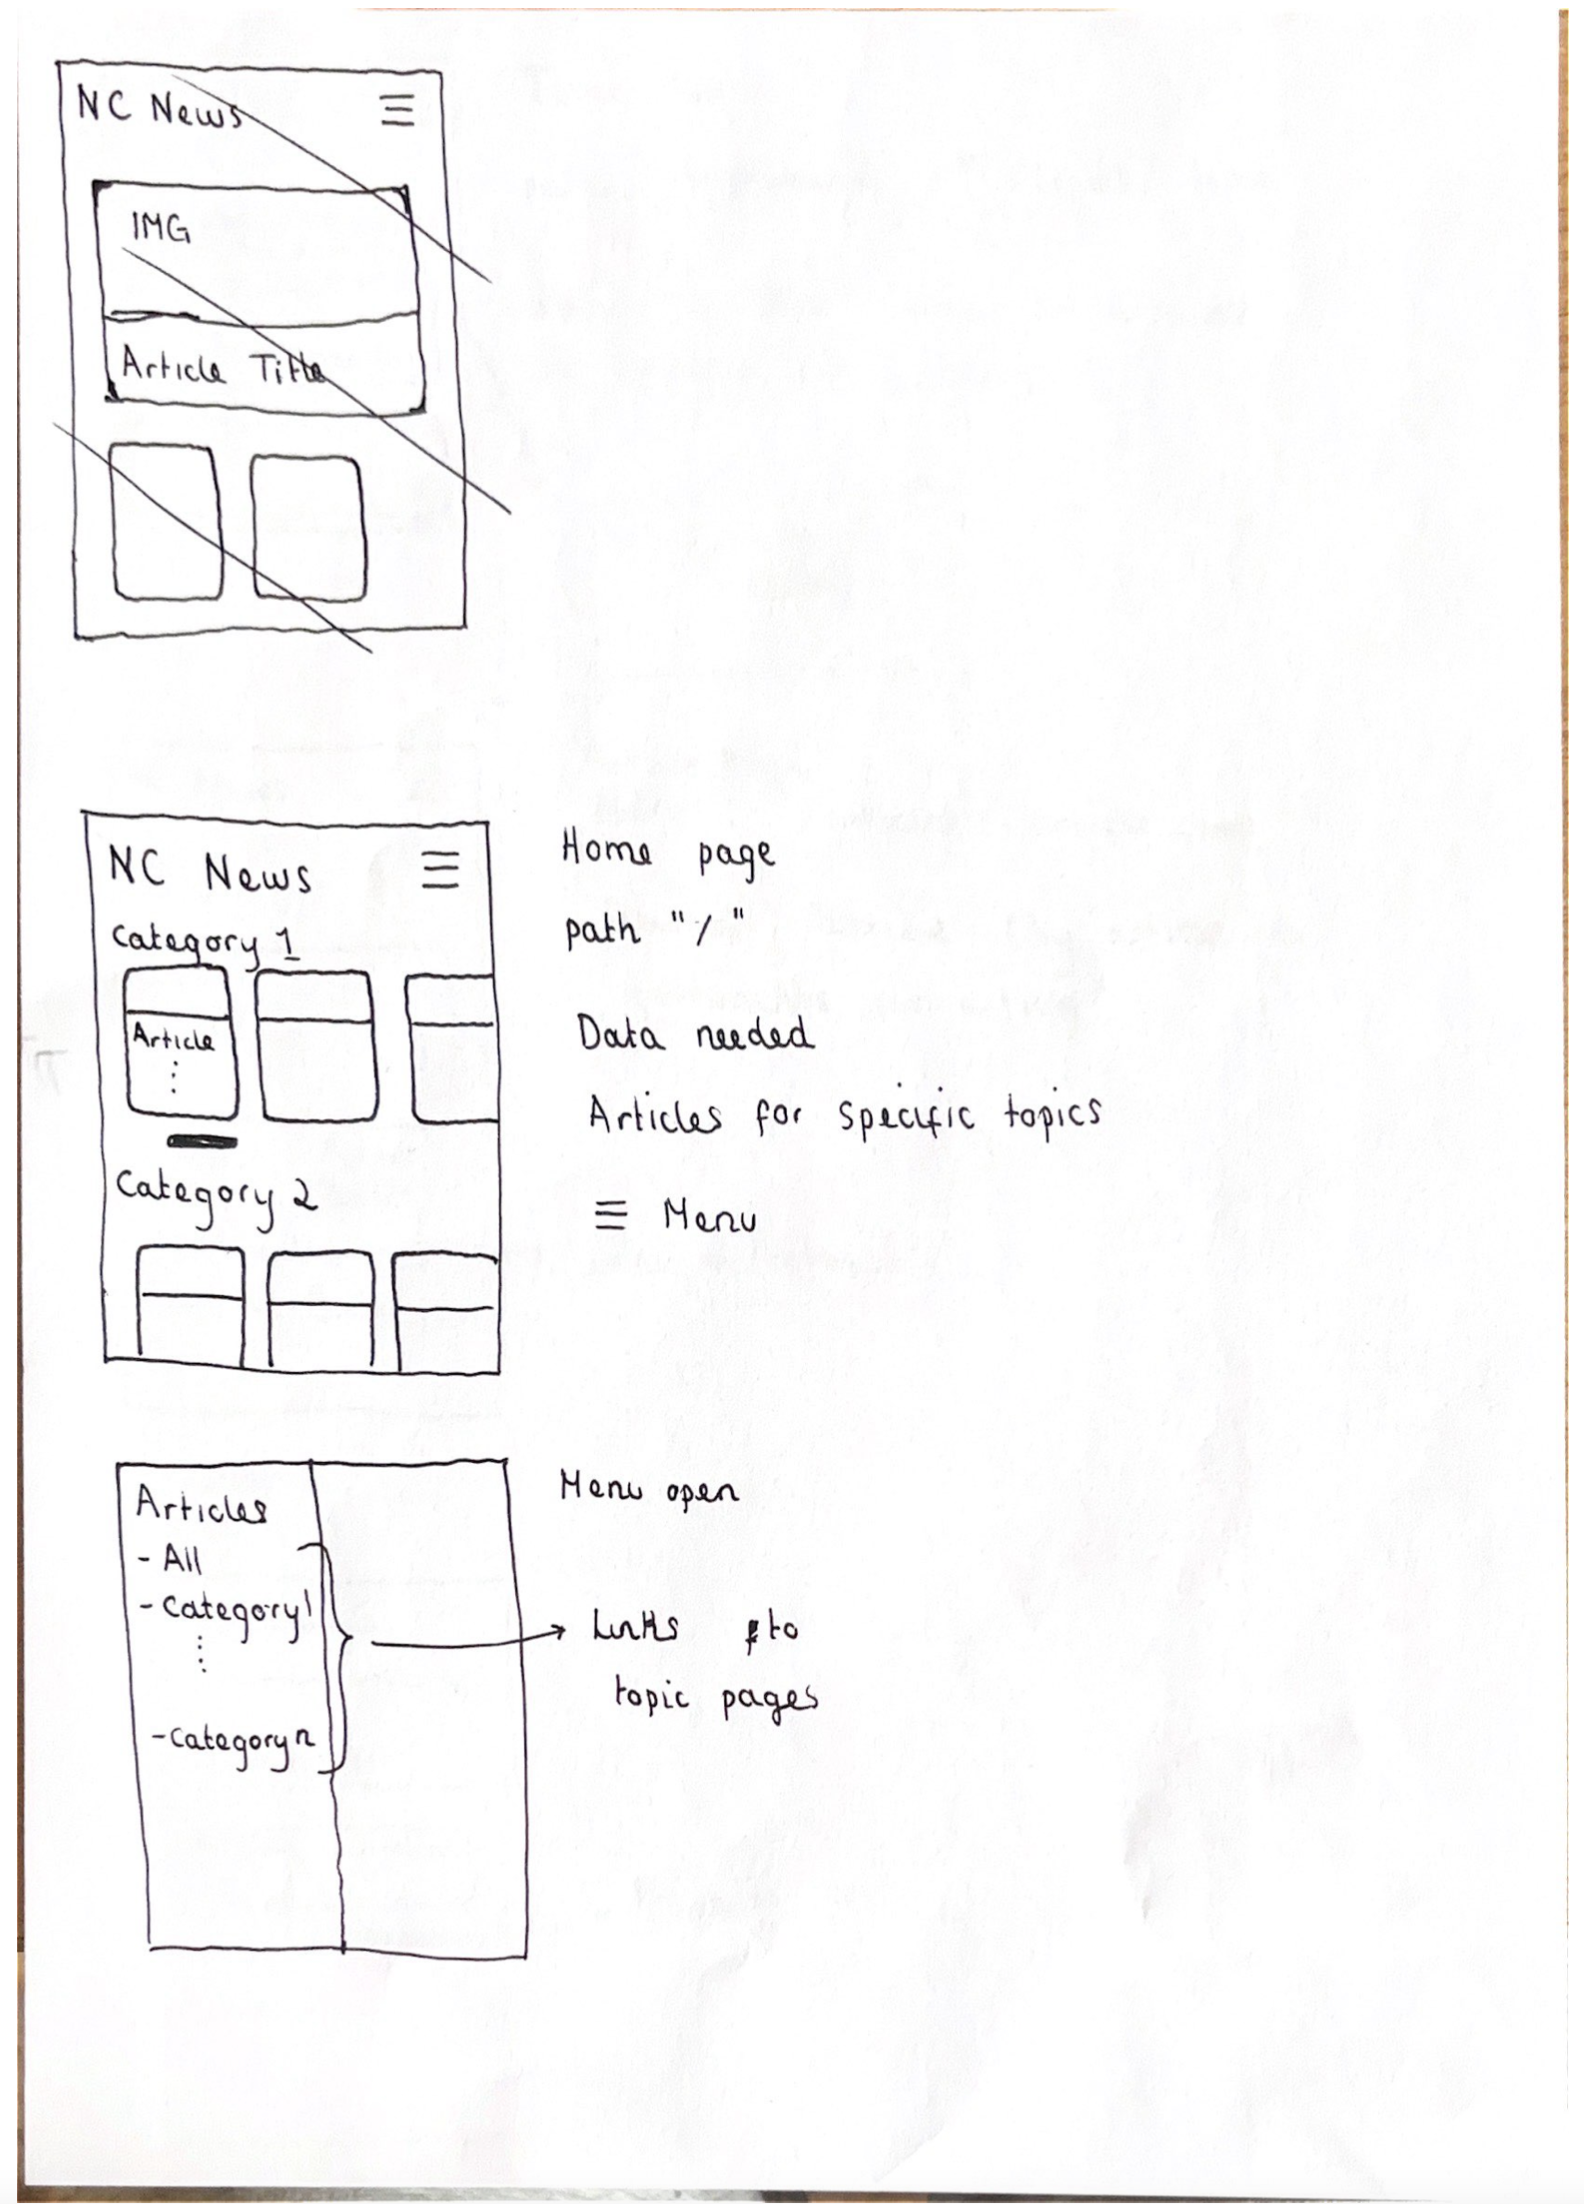 NC News
IMG
Article Title
NC News
Category 1
Article
Category 2
Home page
path "/"
Data needed
Articles for specific topics
Menu
Articles
- All
- Category 1
- Category n
Menu open
Links to
topic pages